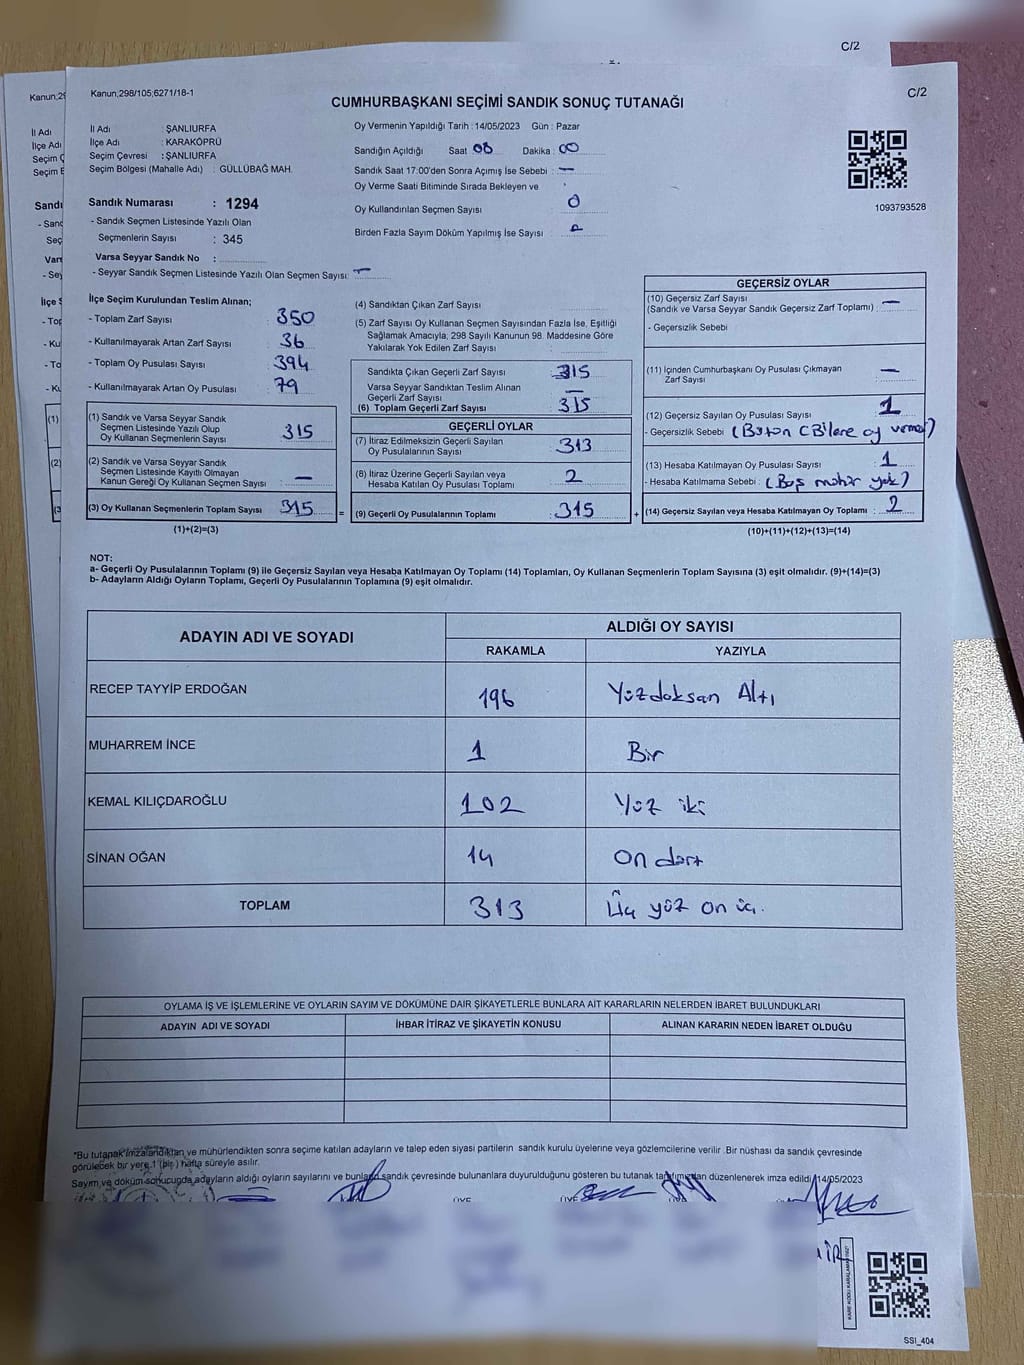 C/2
Kanun;298/105;6271/18-1
C/2
CUMHURBAŞKANI SEÇİMİ SANDIK SONUÇ TUTANAĞI
İl Adı : ŞANLIURFA
İlçe Adı : KARAKÖPRÜ
Seçim Çevresi : ŞANLIURFA
Seçim Bölgesi (Mahalle Adı) : GÜLLÜBAĞ MAH.
Oy Vermenin Yapıldığı Tarih : 14/05/2023 Gün : Pazar
Sandığın Açıldığı Saat 08 Dakika : 00
Sandık Saat 17:00'den Sonra Açımış İse Sebebi : —
Oy Verme Saati Bitiminde Sırada Bekleyen ve
Oy Kullandırılan Seçmen Sayısı 0
Birden Fazla Sayım Döküm Yapılmış İse Sayısı :
1093793528
Sandık Numarası : 1294
- Sandık Seçmen Listesinde Yazılı Olan
Seçmenlerin Sayısı : 345
Varsa Seyyar Sandık No :
- Seyyar Sandık Seçmen Listesinde Yazılı Olan Seçmen Sayısı: —
İlçe Seçim Kurulundan Teslim Alınan;
- Toplam Zarf Sayısı : 350
- Kullanılmayarak Artan Zarf Sayısı : 36
- Toplam Oy Pusulası Sayısı : 394
- Kullanılmayarak Artan Oy Pusulası : 79
(1) Sandık ve Varsa Seyyar Sandık
Seçmen Listesinde Yazılı Olup
Oy Kullanan Seçmenlerin Sayısı : 315
(2) Sandık ve Varsa Seyyar Sandık
Seçmen Listesinde Kayıtlı Olmayan
Kanun Gereği Oy Kullanan Seçmen Sayısı : —
(3) Oy Kullanan Seçmenlerin Toplam Sayısı : 315
(1)+(2)=(3)
(4) Sandıktan Çıkan Zarf Sayısı
(5) Zarf Sayısı Oy Kullanan Seçmen Sayısından Fazla İse, Eşitliği
Sağlamak Amacıyla, 298 Sayılı Kanunun 98. Maddesine Göre
Yakılarak Yok Edilen Zarf Sayısı
Sandıkta Çıkan Geçerli Zarf Sayısı : 315
Varsa Seyyar Sandıktan Teslim Alınan
Geçerli Zarf Sayısı : —
(6) Toplam Geçerli Zarf Sayısı : 315
GEÇERLİ OYLAR
(7) İtiraz Edilmeksizin Geçerli Sayılan
Oy Pusulalarının Sayısı : 313
(8) İtiraz Üzerine Geçerli Sayılan veya
Hesaba Katılan Oy Pusulası Toplamı : 2
(9) Geçerli Oy Pusulalarının Toplamı : 315
=
+
GEÇERSİZ OYLAR
(10) Geçersiz Zarf Sayısı
(Sandık ve Varsa Seyyar Sandık Geçersiz Zarf Toplamı) : —
- Geçersizlik Sebebi
(11) İçinden Cumhurbaşkanı Oy Pusulası Çıkmayan
Zarf Sayısı : —
(12) Geçersiz Sayılan Oy Pusulası Sayısı : 1
- Geçersizlik Sebebi : (Bütün
(13) Hesaba Katılmayan Oy Pusulası Sayısı : 1
- Hesaba Katılmama Sebebi : (Boş mühür yok)
(14) Geçersiz Sayılan veya Hesaba Katılmayan Oy Toplamı : 2
(10)+(11)+(12)+(13)=(14)
NOT:
a- Geçerli Oy Pusulalarının Toplamı (9) ile Geçersiz Sayılan veya Hesaba Katılmayan Oy Toplamı (14) Toplamları, Oy Kullanan Seçmenlerin Toplam Sayısına (3) eşit olmalıdır. (9)+(14)=(3)
b- Adayların Aldığı Oyların Toplamı, Geçerli Oy Pusulalarının Toplamına (9) eşit olmalıdır.
ADAYIN ADI VE SOYADI
ALDIĞI OY SAYISI
RAKAMLA YAZIYLA
RECEP TAYYİP ERDOĞAN 196 Yüzdoksan Altı
MUHARREM İNCE 1 Bir
KEMAL KILIÇDAROĞLU 102 Yüz iki
SİNAN OĞAN 14 On dört
TOPLAM 313 Üç yüz on üç.
OYLAMA İŞ VE İŞLEMLERİNE VE OYLARIN SAYIM VE DÖKÜMÜNE DAİR ŞİKAYETLERLE BUNLARA AİT KARARLARIN NELERDEN İBARET BULUNDUKLARI
ADAYIN ADI VE SOYADI İHBAR İTİRAZ VE ŞİKAYETİN KONUSU ALINAN KARARIN NEDEN İBARET OLDUĞU
*Bu tutanak imzalandıktan ve mühürlendikten sonra seçime katılan adayların ve talep eden siyasi partilerin sandık kurulu üyelerine veya gözlemcilerine verilir .Bir nüshası da sandık çevresinde
görülecek bir yere 1 (bir) hafta süreyle asılır.
Sayım ve döküm sonucunda adayların aldığı oyların sayılarını ve bunların sandık çevresinde bulunanlara duyurulduğunu gösteren bu tutanak tarafımızdan düzenlenerek imza edildi. 14/05/2023
ÜYE ÜYE
KARE KODU KARALAMAYINIZ
SSİ_404